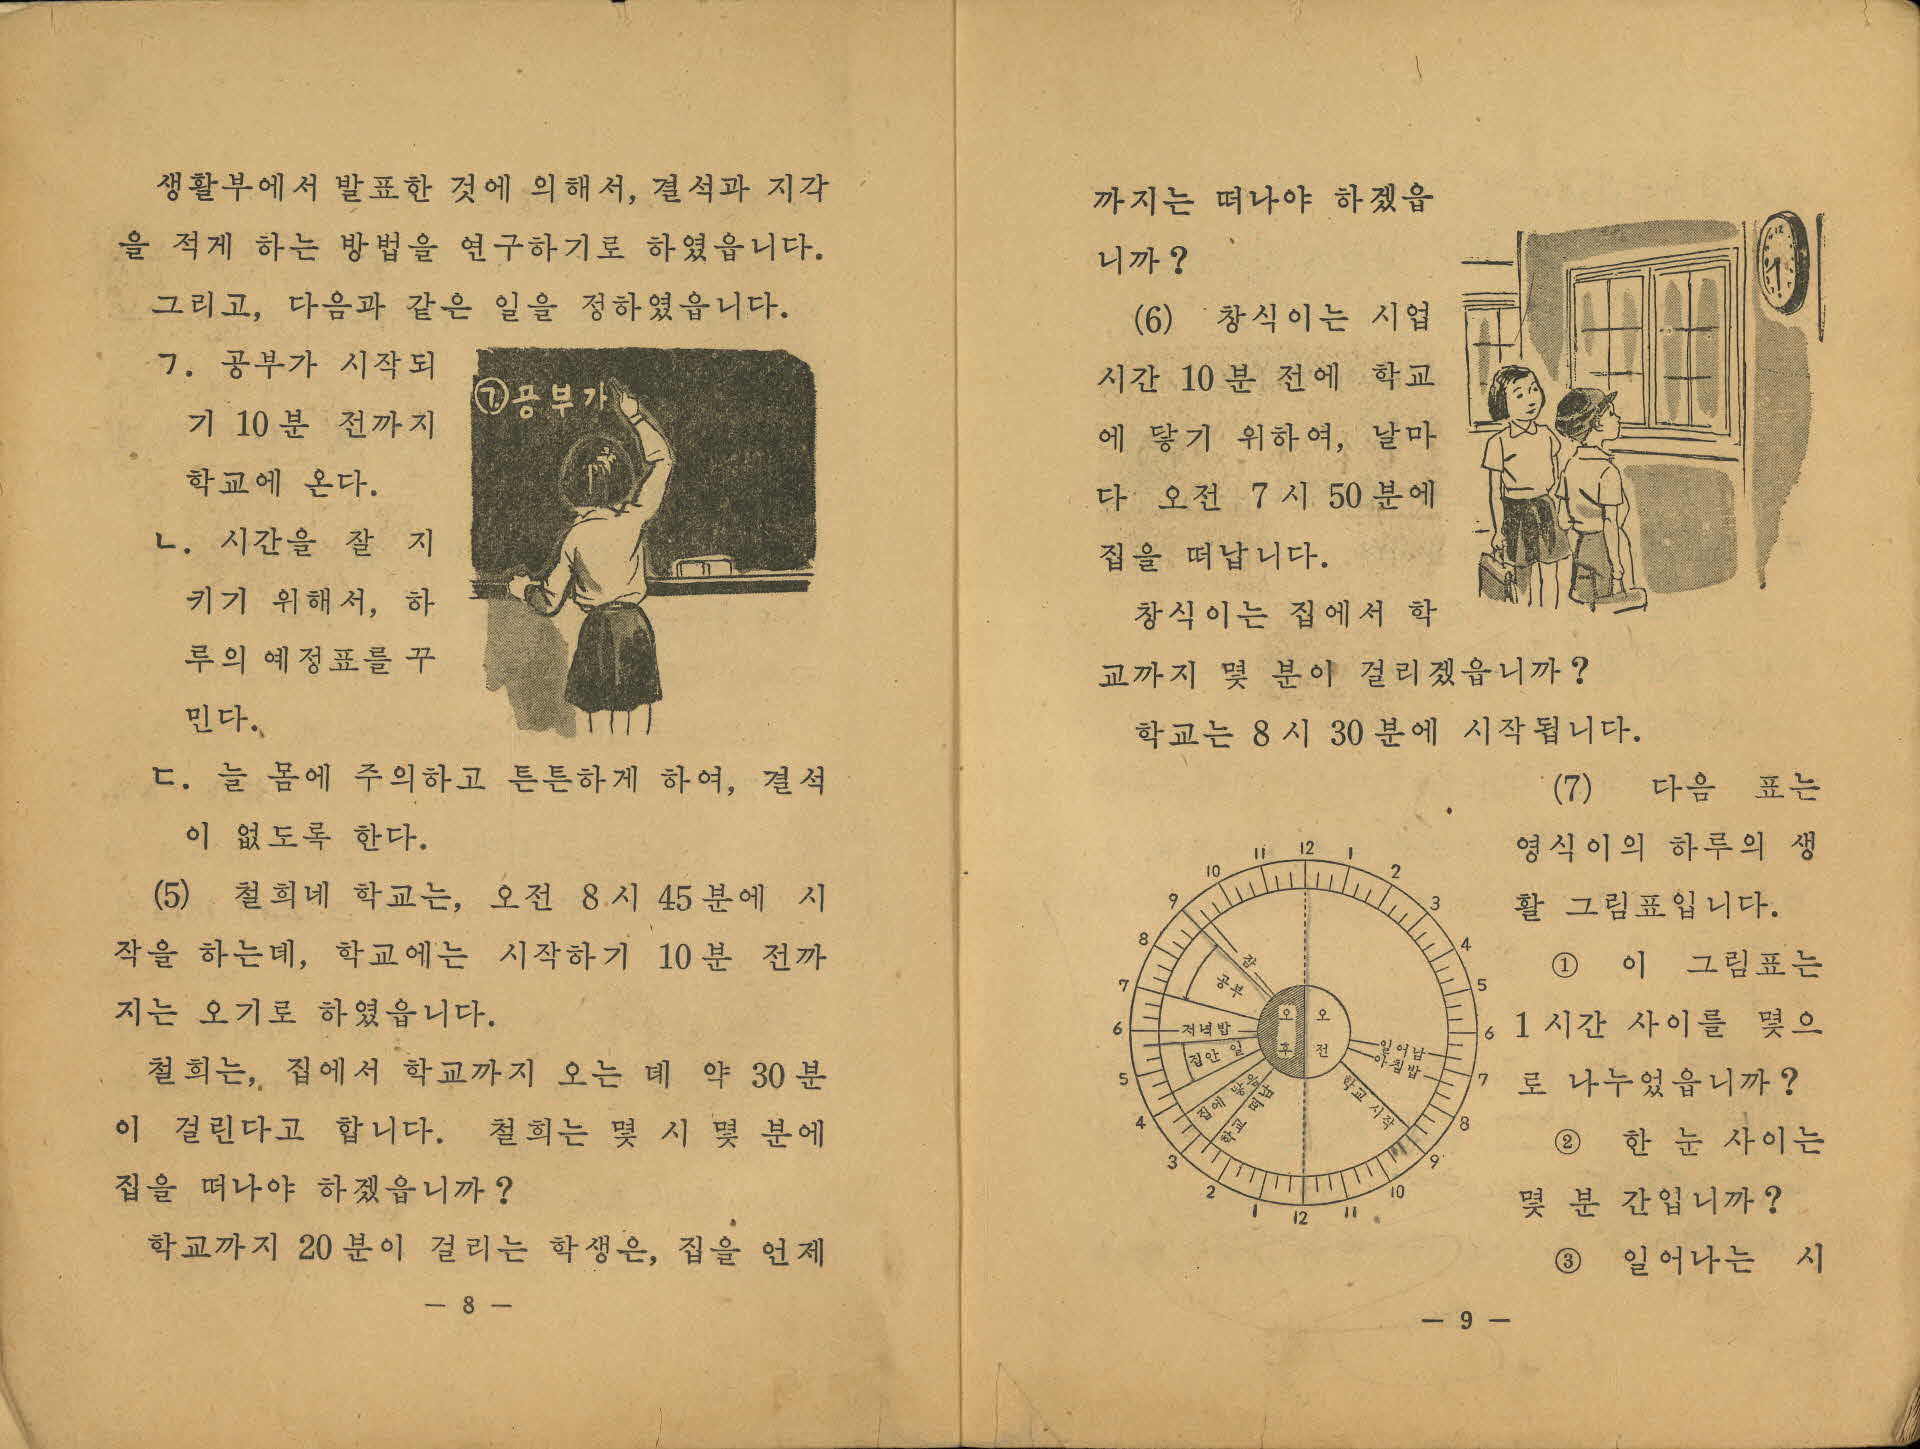 생활부에서 발표한 것에 의해서, 결석과 지각
을 적게 하는 방법을 연구하기로 하였읍니다.
그리고, 다음과 같은 일을 정하였읍니다.
ㄱ. 공부가 시작되
기 10분 전까지
학교에 온다.
ㄴ. 시간을 잘 지
키기 위해서, 하
루의 예정표를 꾸
민다.
ㄱ. 공부가
ㄷ. 늘 몸에 주의하고 튼튼하게 하여, 결석
이 없도록 한다.
(5) 철희네 학교는, 오전 8시 45분에 시
작을 하는데, 학교에는 시작하기 10분 전까
지는 오기로 하였읍니다.
철희는, 집에서 학교까지 오는 데 약 30분
이 걸린다고 합니다. 철희는 몇 시 몇 분에
집을 떠나야 하겠읍니까?
학교까지 20분이 걸리는 학생은, 집을 언제
— 8 —
까지는 떠나야 하겠읍
니까?
(6) 창식이는 시업
시간 10분 전에 학교
에 닿기 위하여, 날마
다 오전 7시 50분에
집을 떠납니다.
창식이는 집에서 학
교까지 몇 분이 걸리겠읍니까?
학교는 8시 30분에 시작됩니다.
(7) 다음 표는
영식이의 하루의 생
활 그림표입니다.
① 이 그림표는
1시간 사이를 몇으
로 나누었읍니까?
② 한 눈 사이는
몇 분 간입니까?
③ 일어나는 시
12 1 2 3 4 5 6 7 8 9 10 11 12 1 2 3 4 5 6 7 8 9 10 11
오전
오후
일어남
아침밥
학교 시작
학교 떠남
집에 닿음
집안 일
저녁밥
공부
잠
— 9 —